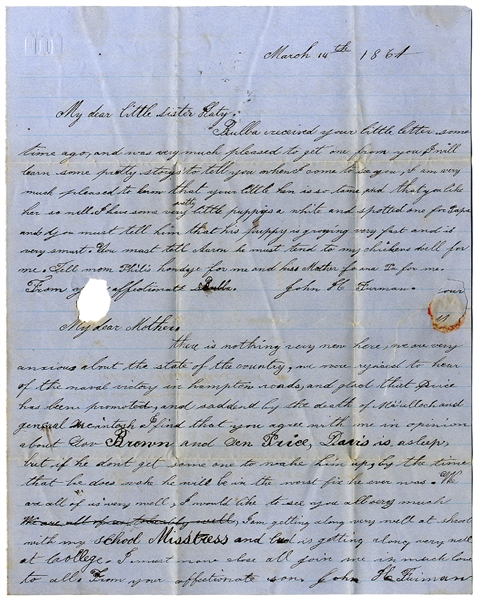 March 14th 1864
My dear little sister Katy:
Bubba received your little letter some
time ago, and was very much pleased to get one from you I will
learn some pretty storys to tell you when I come to see you, I am very
much pleased to know that your little hen is so tame and that you like
her so well. I have some very pretty little puppys a white and spotted one for Papa
and you must tell him that his puppy is growing very fast and is
very smart. You must tell Aaron he must tend to my chickens well for
me. Tell mom Philis howdye for me and kiss Mother for me
From your affectionate Bubba. John H Furman.
My dear Mother,
there is nothing very new here, we are very
anxious about the state of the country, we were rejoiced to hear
of the naval victory in hampton roads, and glad that Price
has been promoted, and saddend by the death of McCulloch and
general McIntosh I find that you agree with me in opinion
about Gov Brown and Gen Price, Davis is asleep,
but if he dont get some one to wake him up, by the time
that he does wake he will be in the worst fix he ever was. We
are all of us very well, I would like to see you all very much
We are all of us tolerably well, I am getting along very well at school
with my school Misstress and is getting along very well
at College. I must now close all join me in much love
to all. From your affectionate son John H Furman